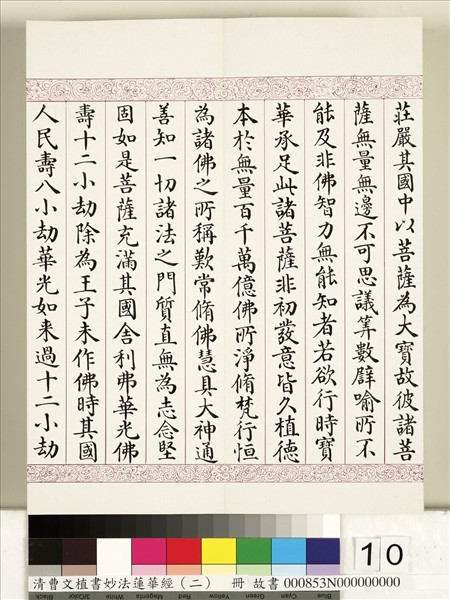 莊嚴其國中以菩薩為大寶故彼諸菩
薩無量無邊不可思議筭數譬喻所不
能及非佛智力無能知者若欲行時寶
華承足此諸菩薩非初發意皆久植德
本於無量百千萬億佛所淨脩梵行恒
為諸佛之所稱歎常脩佛慧具大神通
善知一切諸法之門質直無為志念堅
固如是菩薩充滿其國舍利弗華光佛
壽十二小劫除為王子未作佛時其國
人民壽八小劫華光如来過十二小劫
10
Black 3/Color White Magenta Red Yellow Green Cyan Blue
清曹文植書妙法蓮華經（二） 冊 故書 000853N000000000